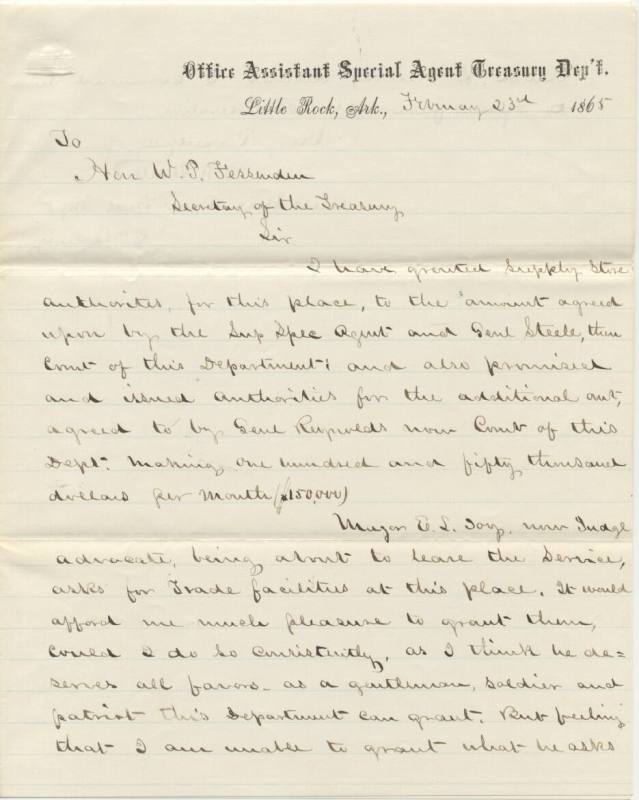 Office Assistant Special Agent Treasury Dep't.
Little Rock, Ark., February 23d 1865
To
Hon W. P. Fessenden
Secretary of the Treasury
Sir
I have granted Supply Store
authorites, for this place, to the amount agreed
upon by the Sup Spec Agent and Genl Steele, then
Comt of this Department; and also promised
and issued authorities for the additional amt,
agreed to by Genl Reynolds now Comt of this
Dept. making one hundred and fifty thousand
dollars per month ($150,000)
Major E. L. now Judge
advocate, being about to leave the Service,
asks for Trade facilities at this place. It would
afford me much pleasure to grant them,
could I do so consistently, as I think he de=
serves all favors - as a gentleman, soldier and
patriot this Department can grant. But feeling
that I am unable to grant what he asks